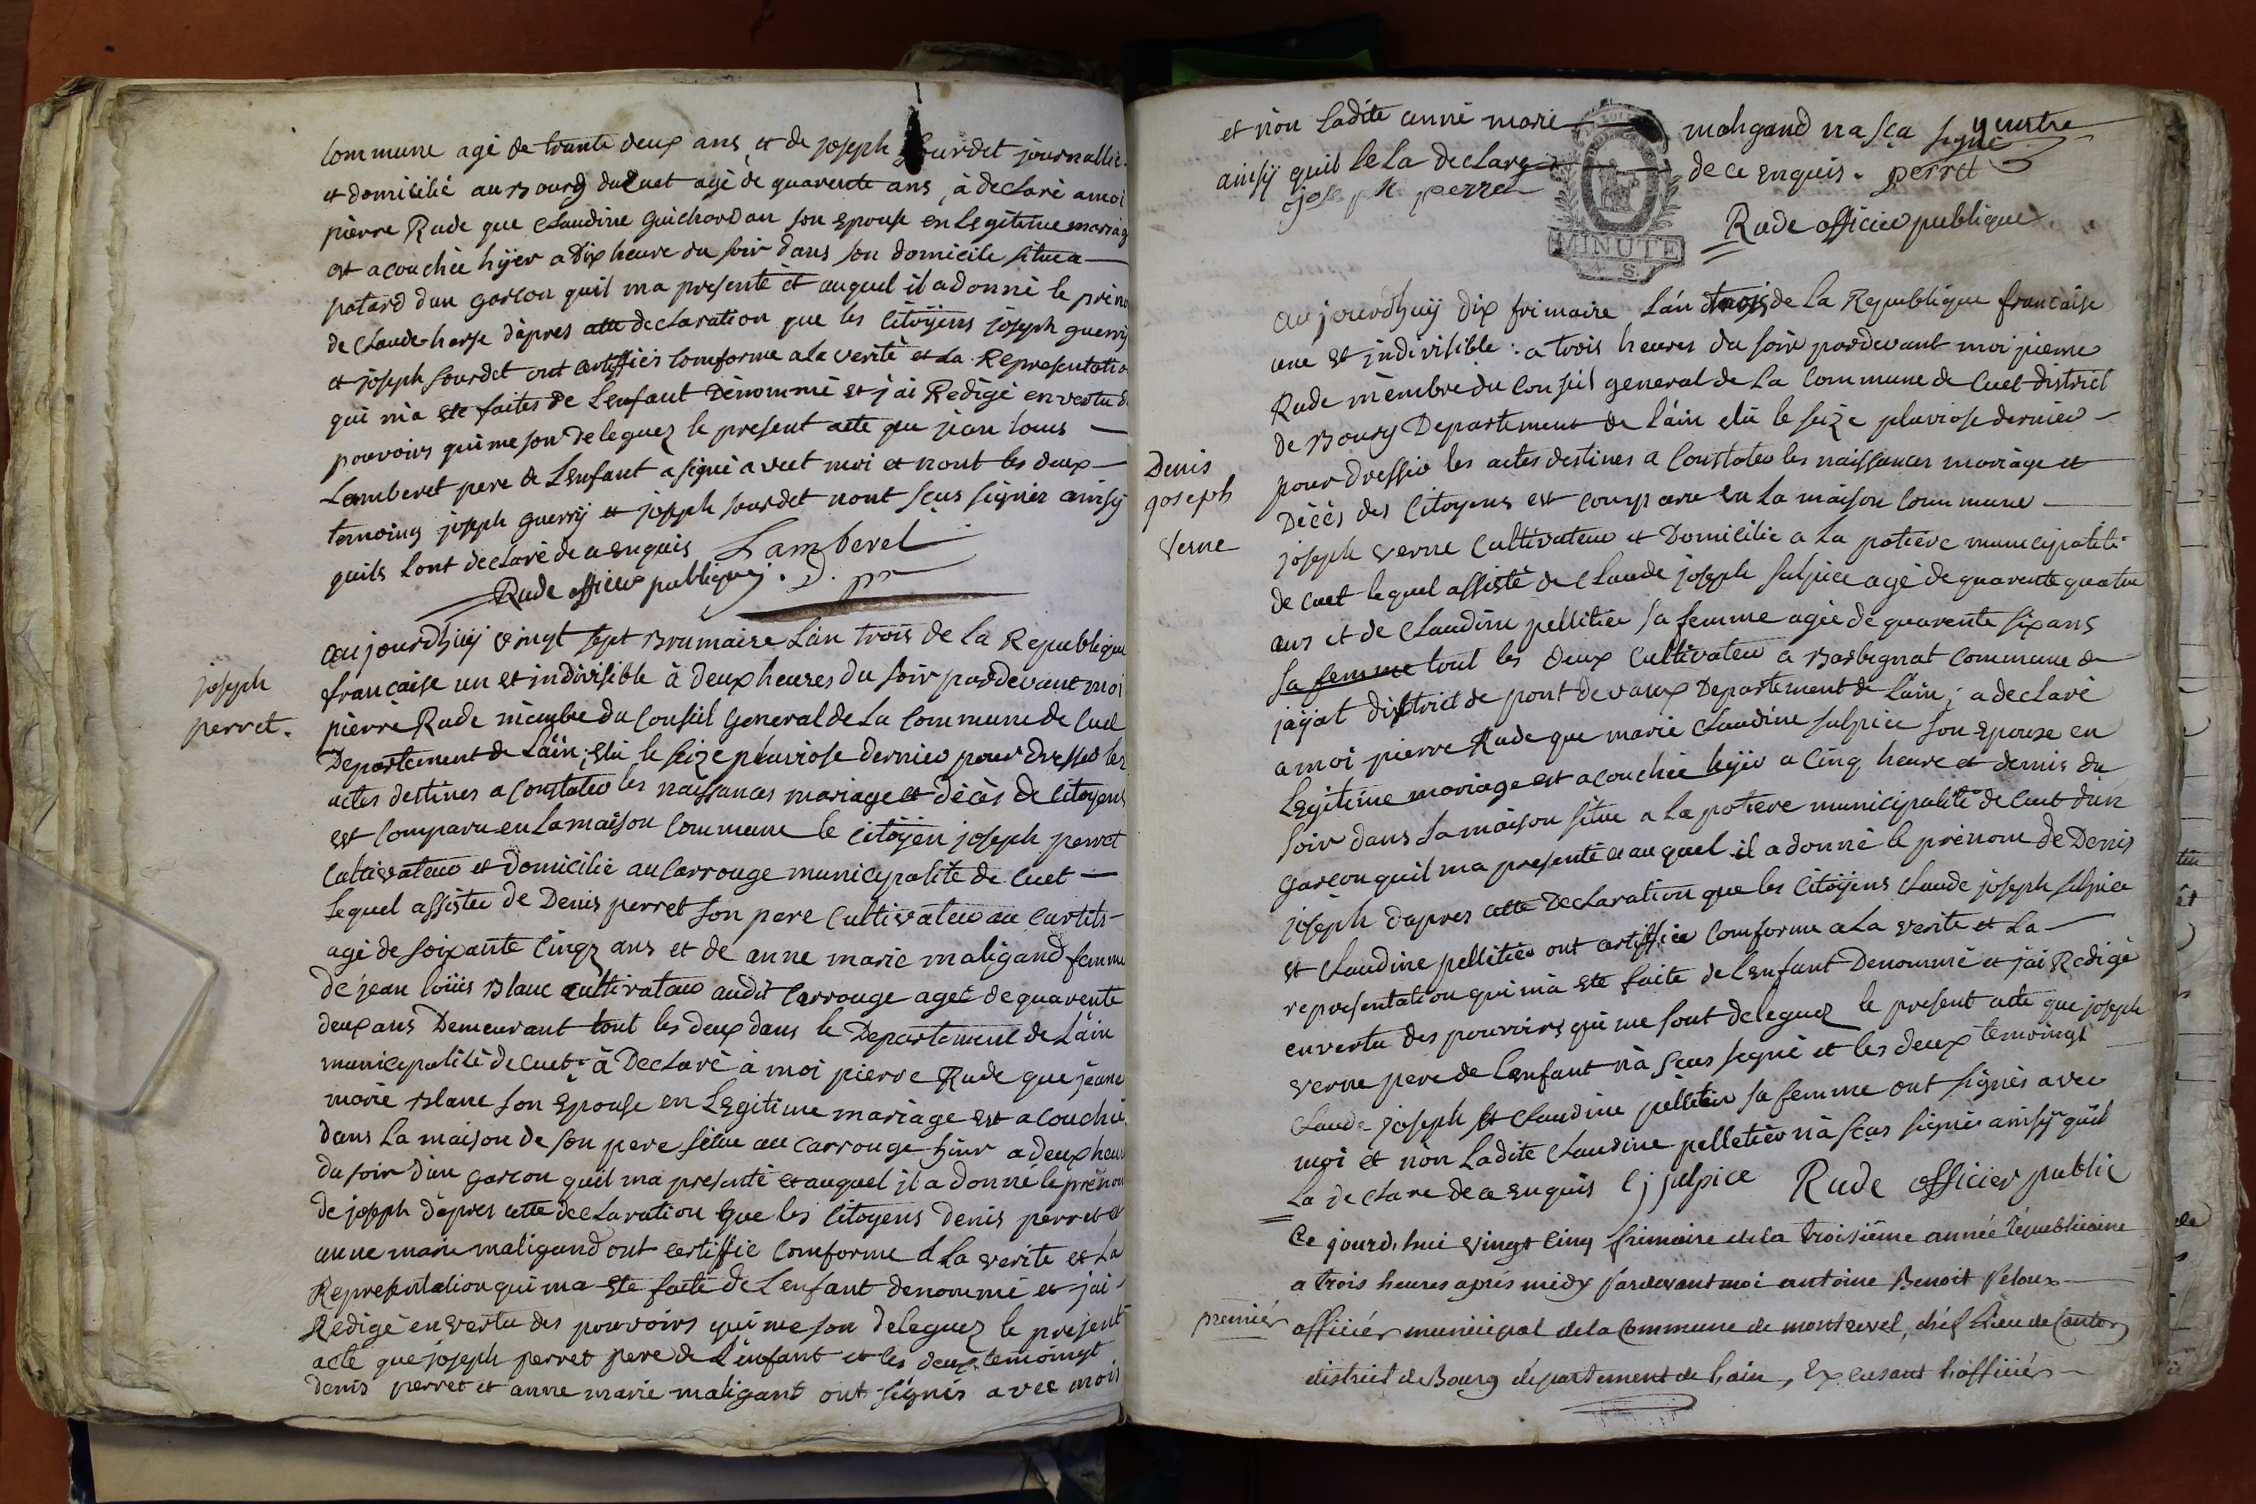 commune agé de trante deux ans, et de joseph Sourdet journallie
et domicilié au Bourg duCuet agé de quarente ans, à declaré a moi
pierre Rude que Claudine Guichardan son Epouse en Legitime mariag
est acouchée hijer a dix heure du soir dans son domicile situe a
potard dun garcon quil ma presenté et auquel il a donné le préno
de Claude d'apres cette declaration que les Citoÿens joseph guerrij
et joseph Sourdet ont certiffiés comforme a la verité et La Representatio
qui m'a ete faites de Lenfant Dénommé et j'ai Redigé en vertu d
pouvoirs qui me son deleguez le present acte que jean louis
Lamberet pere de Lenfant a signé avect moi et nont les deux
temoings joseph guerrij et joseph sourdet nont sçus signer ainsij
quils Lont declaré de a enquis Lamberel
Rude officier publique
joseph
perret.
aujourdhuij vingt sept Brumaire Lan trois de la Republique
francaise un et indivisible à deux heures du soir pardevant moi
pierre Rude membre du Conseil General de La Commune de Cuet
Departement de Lain, élu le seize pluviose dernier pour dresser les
actes destines a constater les naissances mariage et décès de Citoyens
est comparu en La maison commune le Citoÿen joseph perret
Cultivateur et domicilié au Carrouge municipalité de Cuet
Lequel assistée de Denis perret son pere Cultivateur au Curtils
agé de soixante Cinqz ans et de anne marie maligand femme
de jean loüis Blanc Cultivateur audit Carrouge ageé de quarente
deux ans Demeurant tout les deux dans le Departement de Lain
municipalité de Cuet à Declaré à moi pierre Rude que jeane
marie Blanc son Epouse en Legitime mariage est acouchée
dans La maison de son pere situe au Carrouge hier a deux heur
du soir d'un garcon quil ma presenté et auquel il a donné le prénom
de joseph d'apres cette declaration que les Citoyens Denis perret et
anne marie maligand ont certiffié comforme a La verité et La
Representation qui ma ete faite de Lenfant denommé et j'ai
Redigé en vertu des pouvoirs qui me son deleguez le present
acte que joseph perret pere de L'enfant et les deux temoingt
denis perret et anne marie maligant ont signés avec moi
et nôn Ladite anné marie maligand na sça signé
ainsij quil le la declare de ce enquis. perret
joseph perret
Rude officier publique
MINUTE
4 S.
aujourdhuij dix frimaire Lan trois de La Republique francaise
une et indivisible : a trois heures du soir pardevant moi pierre
Rude mèmbre du conseil general de La commune de Cuet district
de Bourg Departement de Lain élu le seize pluviose dernier
pour dressir les actes destines a constater les naissances mariage et
Décès des Citoyens est comparu en La maison commune
Denis
joseph
Verne
joseph verne cultivateur et Domicilié a La potiere municipalité
de cuet lequel assisté de Claude joseph sulpice agé de quarente quatre
ans et de Claudine pelletier sa femme agée de quarente six ans
sa femme tout les deux cultivateur a Barbignat commune de
jaÿat district de pont de vaux Departement de Lain ; a declaré
a moi pierre Rude que marie Claudine sulpice son Epouse en
Legitime mariage est acouchée hijer a Cinq heure et demis du
soir dans La maison situe a La potiere municipalité de Cuet dun
garcon quil ma presenté et auquel il a donné le prénom de Denis
joseph dapres cette declaration que les Citoÿens Claude joseph sulpice
et Claudine pelletier ont certiffiée comforme a La verité et La
representation qui m'a ete faite de Lenfant Denommé et j'ai Redigé
en vertu des pouvoirs qui me sont deleguez le present acte que joseph
verne pere de Lenfant n'a sçus signé et les deux temoingt
Claude joseph et Claudine pelletier sa femme ont signés avec
moi et nôn Ladite Claudine pelletier n'a sças signés ainsij quil
La declare de ce enquis Cj sulpice Rude officier public
Ce jourd.hui vingt cinq frimaire de la troisième année républicaine
a trois heures après midy pardevant moi antoine Benoit Peloux
premier officier municipal de la Commune de montrevel, chef Lieu de Canton
district de Bourg département de Lain, Excusant l'officier